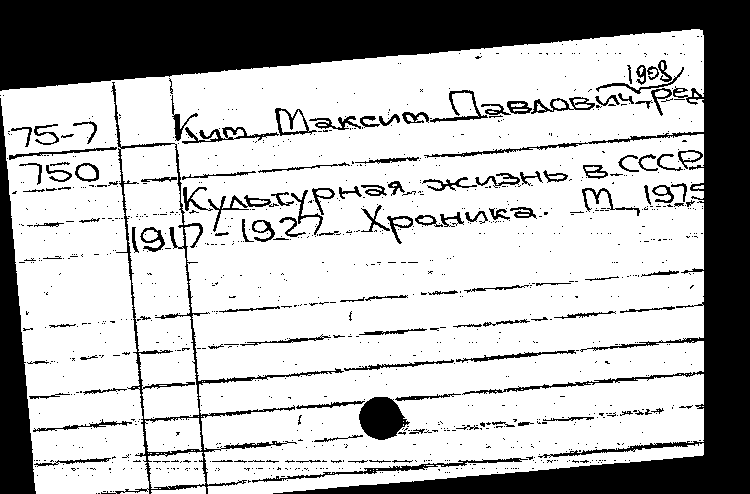 1908
75-7 Ким, Максим Павлович, ред
750
Культурная жизнь в СССР
1917-1927 Хроника. М, 1975